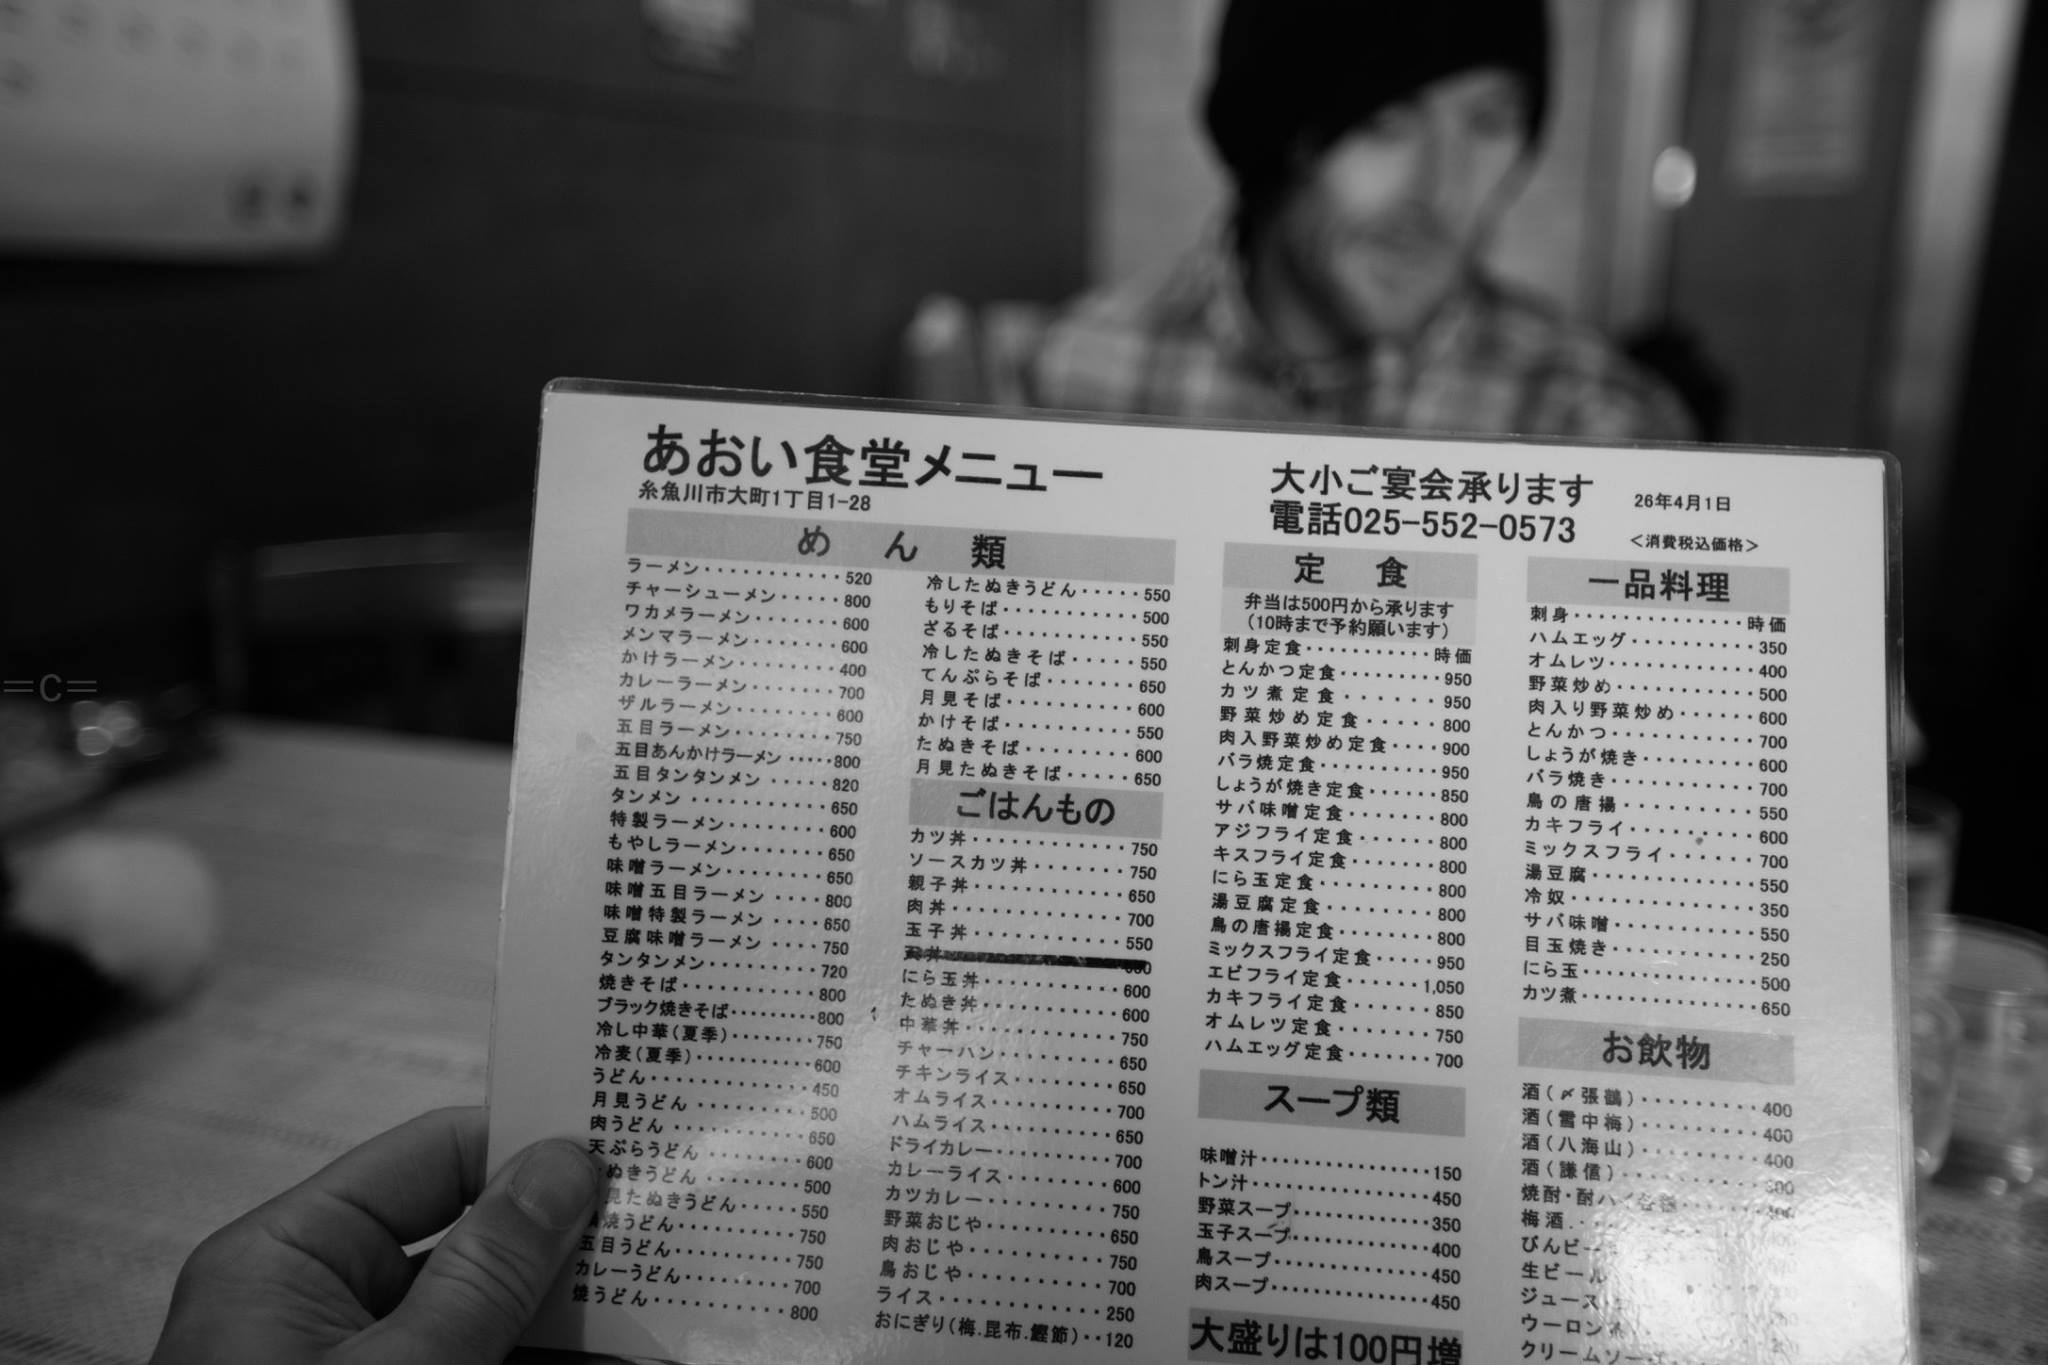 =C=
あおい食堂メニュー
糸魚川市大町1丁目1-28
大小ご宴会承ります
電話025-552-0573
26年4月1日
<消費税込価格>
めん類
ラーメン・・・・・・・・・・・520
チャーシューメン・・・・・800
ワカメラーメン・・・・・・・600
メンマラーメン・・・・・・・600
かけラーメン・・・・・・・・400
カレーラーメン・・・・・・・700
ザルラーメン・・・・・・・・600
五目ラーメン・・・・・・・・750
五目あんかけラーメン・・・・・800
五目タンタンメン・・・・・820
タンメン・・・・・・・・・・650
特製ラーメン・・・・・・・・600
もやしラーメン・・・・・・・650
味噌ラーメン・・・・・・・・650
味噌五目ラーメン・・・・800
味噌特製ラーメン・・・・650
豆腐味噌ラーメン・・・・750
タンタンメン・・・・・・・・720
焼きそば・・・・・・・・・・800
ブラック焼きそば・・・・・・・・・800
冷し中華(夏季)・・・・・・・750
冷麦(夏季)・・・・・・・・・600
うどん・・・・・・・・・・・・450
月見うどん・・・・・・・・・500
肉うどん・・・・・・・・・・650
天ぷらうどん・・・・・・・・600
ぬきうどん・・・・・・・・500
見たぬきうどん・・・・・550
焼うどん・・・・・・・・・750
五目うどん・・・・・・・・・750
カレーうどん・・・・・・・・700
焼うどん・・・・・・・・・・800
冷したぬきうどん・・・・・550
もりそば・・・・・・・・・・500
ざるそば・・・・・・・・・・550
冷したぬきそば・・・・・550
てんぷらそば・・・・・・・650
月見そば・・・・・・・・・・600
かけそば・・・・・・・・・・550
たぬきそば・・・・・・・・600
月見たぬきそば・・・・・650
ごはんもの
カツ丼・・・・・・・・・・・750
ソースカツ丼・・・・・・・750
親子丼・・・・・・・・・・・650
肉丼・・・・・・・・・・・・700
玉子丼・・・・・・・・・・・550
にら玉丼・・・・・・・・・・600
たぬき丼・・・・・・・・・・600
中華丼・・・・・・・・・・・750
チャーハン・・・・・・・・650
チキンライス・・・・・・・650
オムライス・・・・・・・・700
ハムライス・・・・・・・・650
ドライカレー・・・・・・・700
カレーライス・・・・・・・600
カツカレー・・・・・・・・750
野菜おじや・・・・・・・・650
肉おじや・・・・・・・・・・750
鳥おじや・・・・・・・・・・700
ライス・・・・・・・・・・・250
おにぎり(梅.昆布.鰹節)・・120
定食
弁当は500円から承ります
(10時まで予約願います)
刺身定食・・・・・・・・・・・時価
とんかつ定食・・・・・・・・950
カツ煮定食・・・・・・950
野菜炒め定食・・・・・800
肉入野菜炒め定食・・・・900
バラ焼定食・・・・・・・・・950
しょうが焼き定食・・・・・・850
サバ味噌定食・・・・・・・・800
アジフライ定食・・・・・・・800
キスフライ定食・・・・・・・800
にら玉定食・・・・・・・・・800
湯豆腐定食・・・・・・・・・800
鳥の唐揚定食・・・・・・・・800
ミックスフライ定食・・・・・950
エビフライ定食・・・・・・1,050
カキフライ定食・・・・・・・850
オムレツ定食・・・・・・・・750
ハムエッグ定食・・・・・・・700
スープ類
味噌汁・・・・・・・・・・・・・・・150
トン汁・・・・・・・・・・・・・・・450
野菜スープ・・・・・・・・・・・・350
玉子スープ・・・・・・・・・・・・400
鳥スープ・・・・・・・・・・・・・450
肉スープ・・・・・・・・・・・・・450
大盛りは100円増
一品料理
刺身・・・・・・・・・・・・・・時価
ハムエッグ・・・・・・・・・・350
オムレツ・・・・・・・・・・・・400
野菜炒め・・・・・・・・・・・・500
肉入り野菜炒め・・・・・・600
とんかつ・・・・・・・・・・・・700
しょうが焼き・・・・・・・・・600
バラ焼き・・・・・・・・・・・・700
鳥の唐揚・・・・・・・・・・・・550
カキフライ・・・・・・・・・・600
ミックスフライ・・・・・・・700
湯豆腐・・・・・・・・・・・・・550
冷奴・・・・・・・・・・・・・・350
サバ味噌・・・・・・・・・・・・550
目玉焼き・・・・・・・・・・・・250
にら玉・・・・・・・・・・・・・500
カツ煮・・・・・・・・・・・・・650
お飲物
酒(〆張鶴)・・・・・・・・・400
酒(雪中梅)・・・・・・・・・400
酒(八海山)・・・・・・・・・400
酒(謙信)・・・・・・・・・・300
焼酎・酎ハイ各種・・・・・・400
梅酒
びんビー
生ビール
ジュース
ウーロン
クリームソー